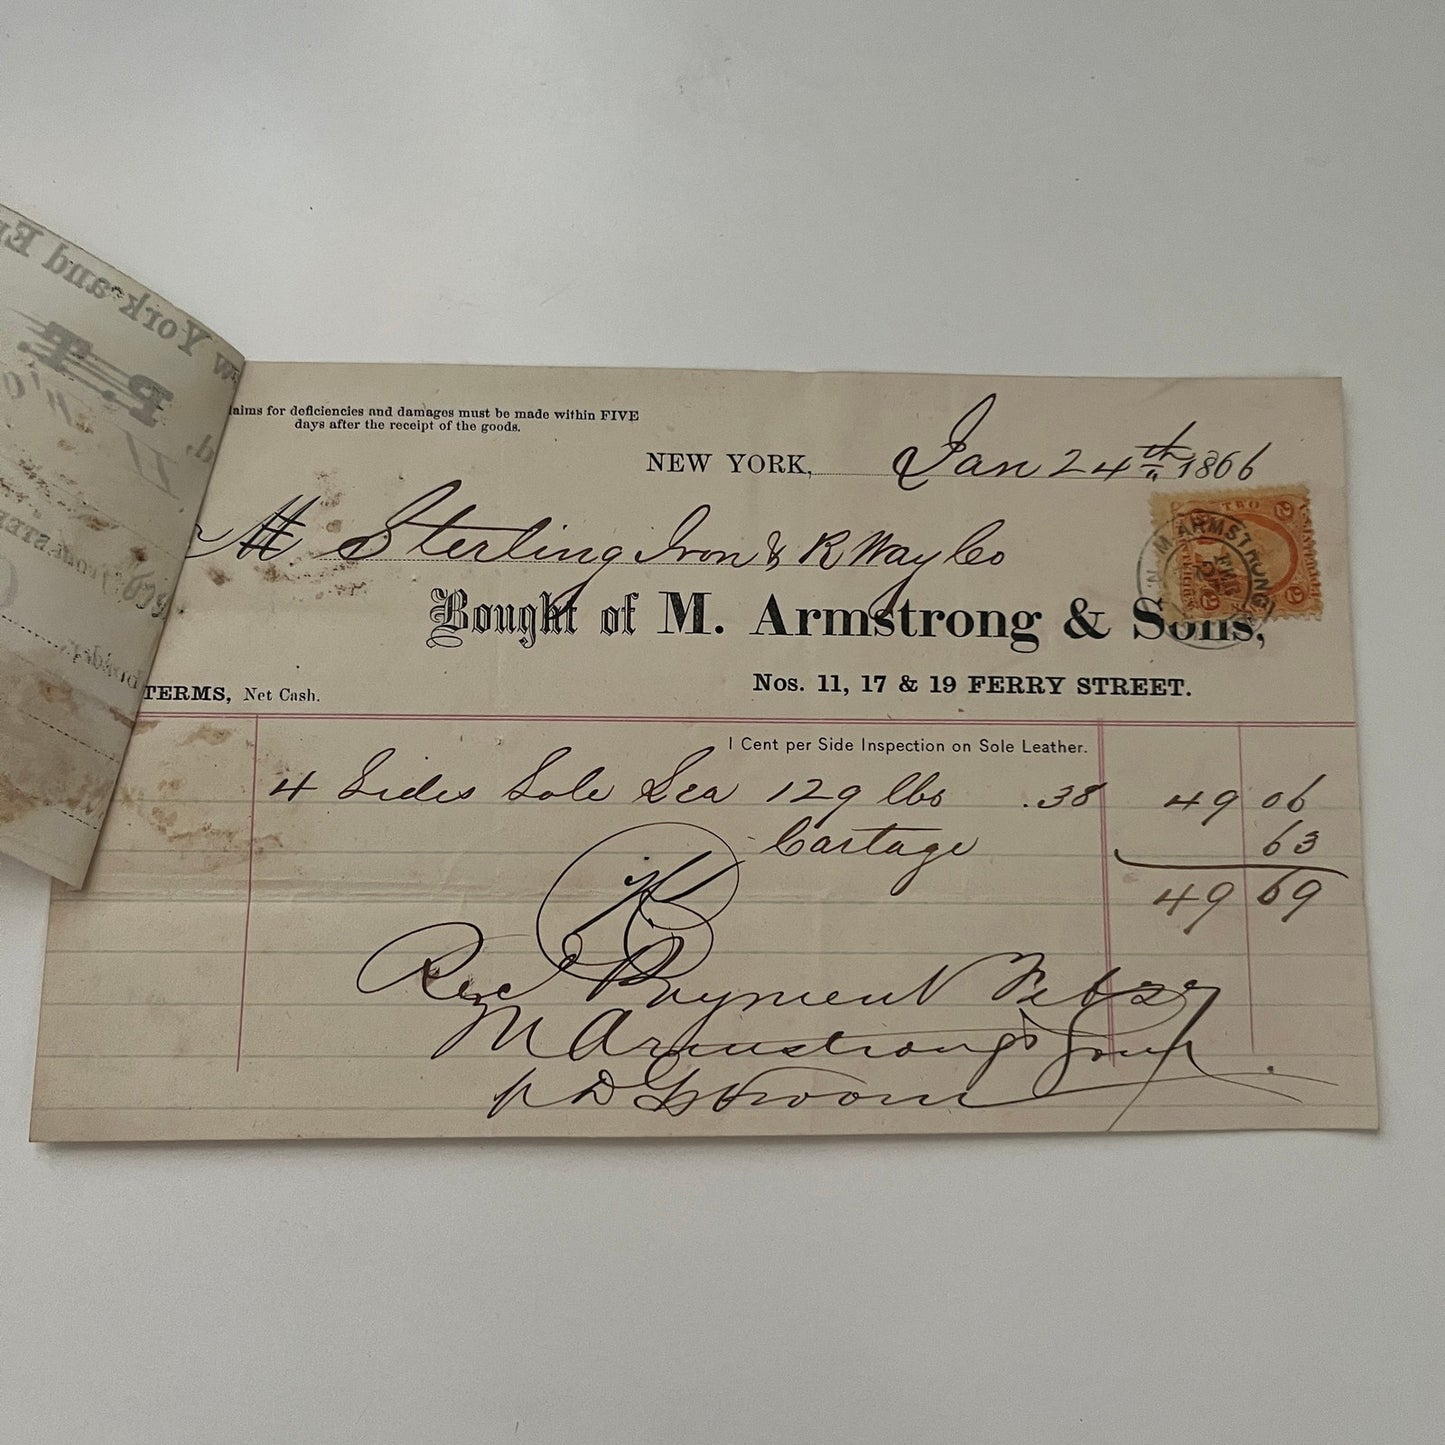 laims for deficiencies and damages must be made within FIVE
days after the receipt of the goods.
NEW YORK, Jan 24th 1866
M Sterling Iron & R Way Co
TWO
2 2
M ARMSTRONG
Bought of M. Armstrong & Sons,
Nos. 11, 17 & 19 FERRY STREET.
TERMS, Net Cash.
1 Cent per Side Inspection on Sole Leather.
4 Sides Sole Lea 129 lbs .38 49 06
Cartage 63
49 69
Rec Payment Feb
M Armstrong & Sons
w York and Er